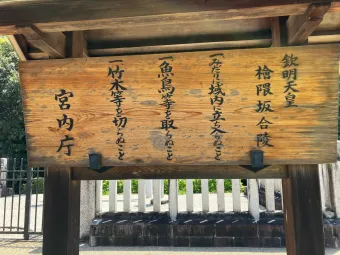 欽明天皇
檜隈坂合陵
一みだりに域内に立ち入らぬこと
一魚鳥等を取らぬこと
一竹木等を切らぬこと
宮内庁